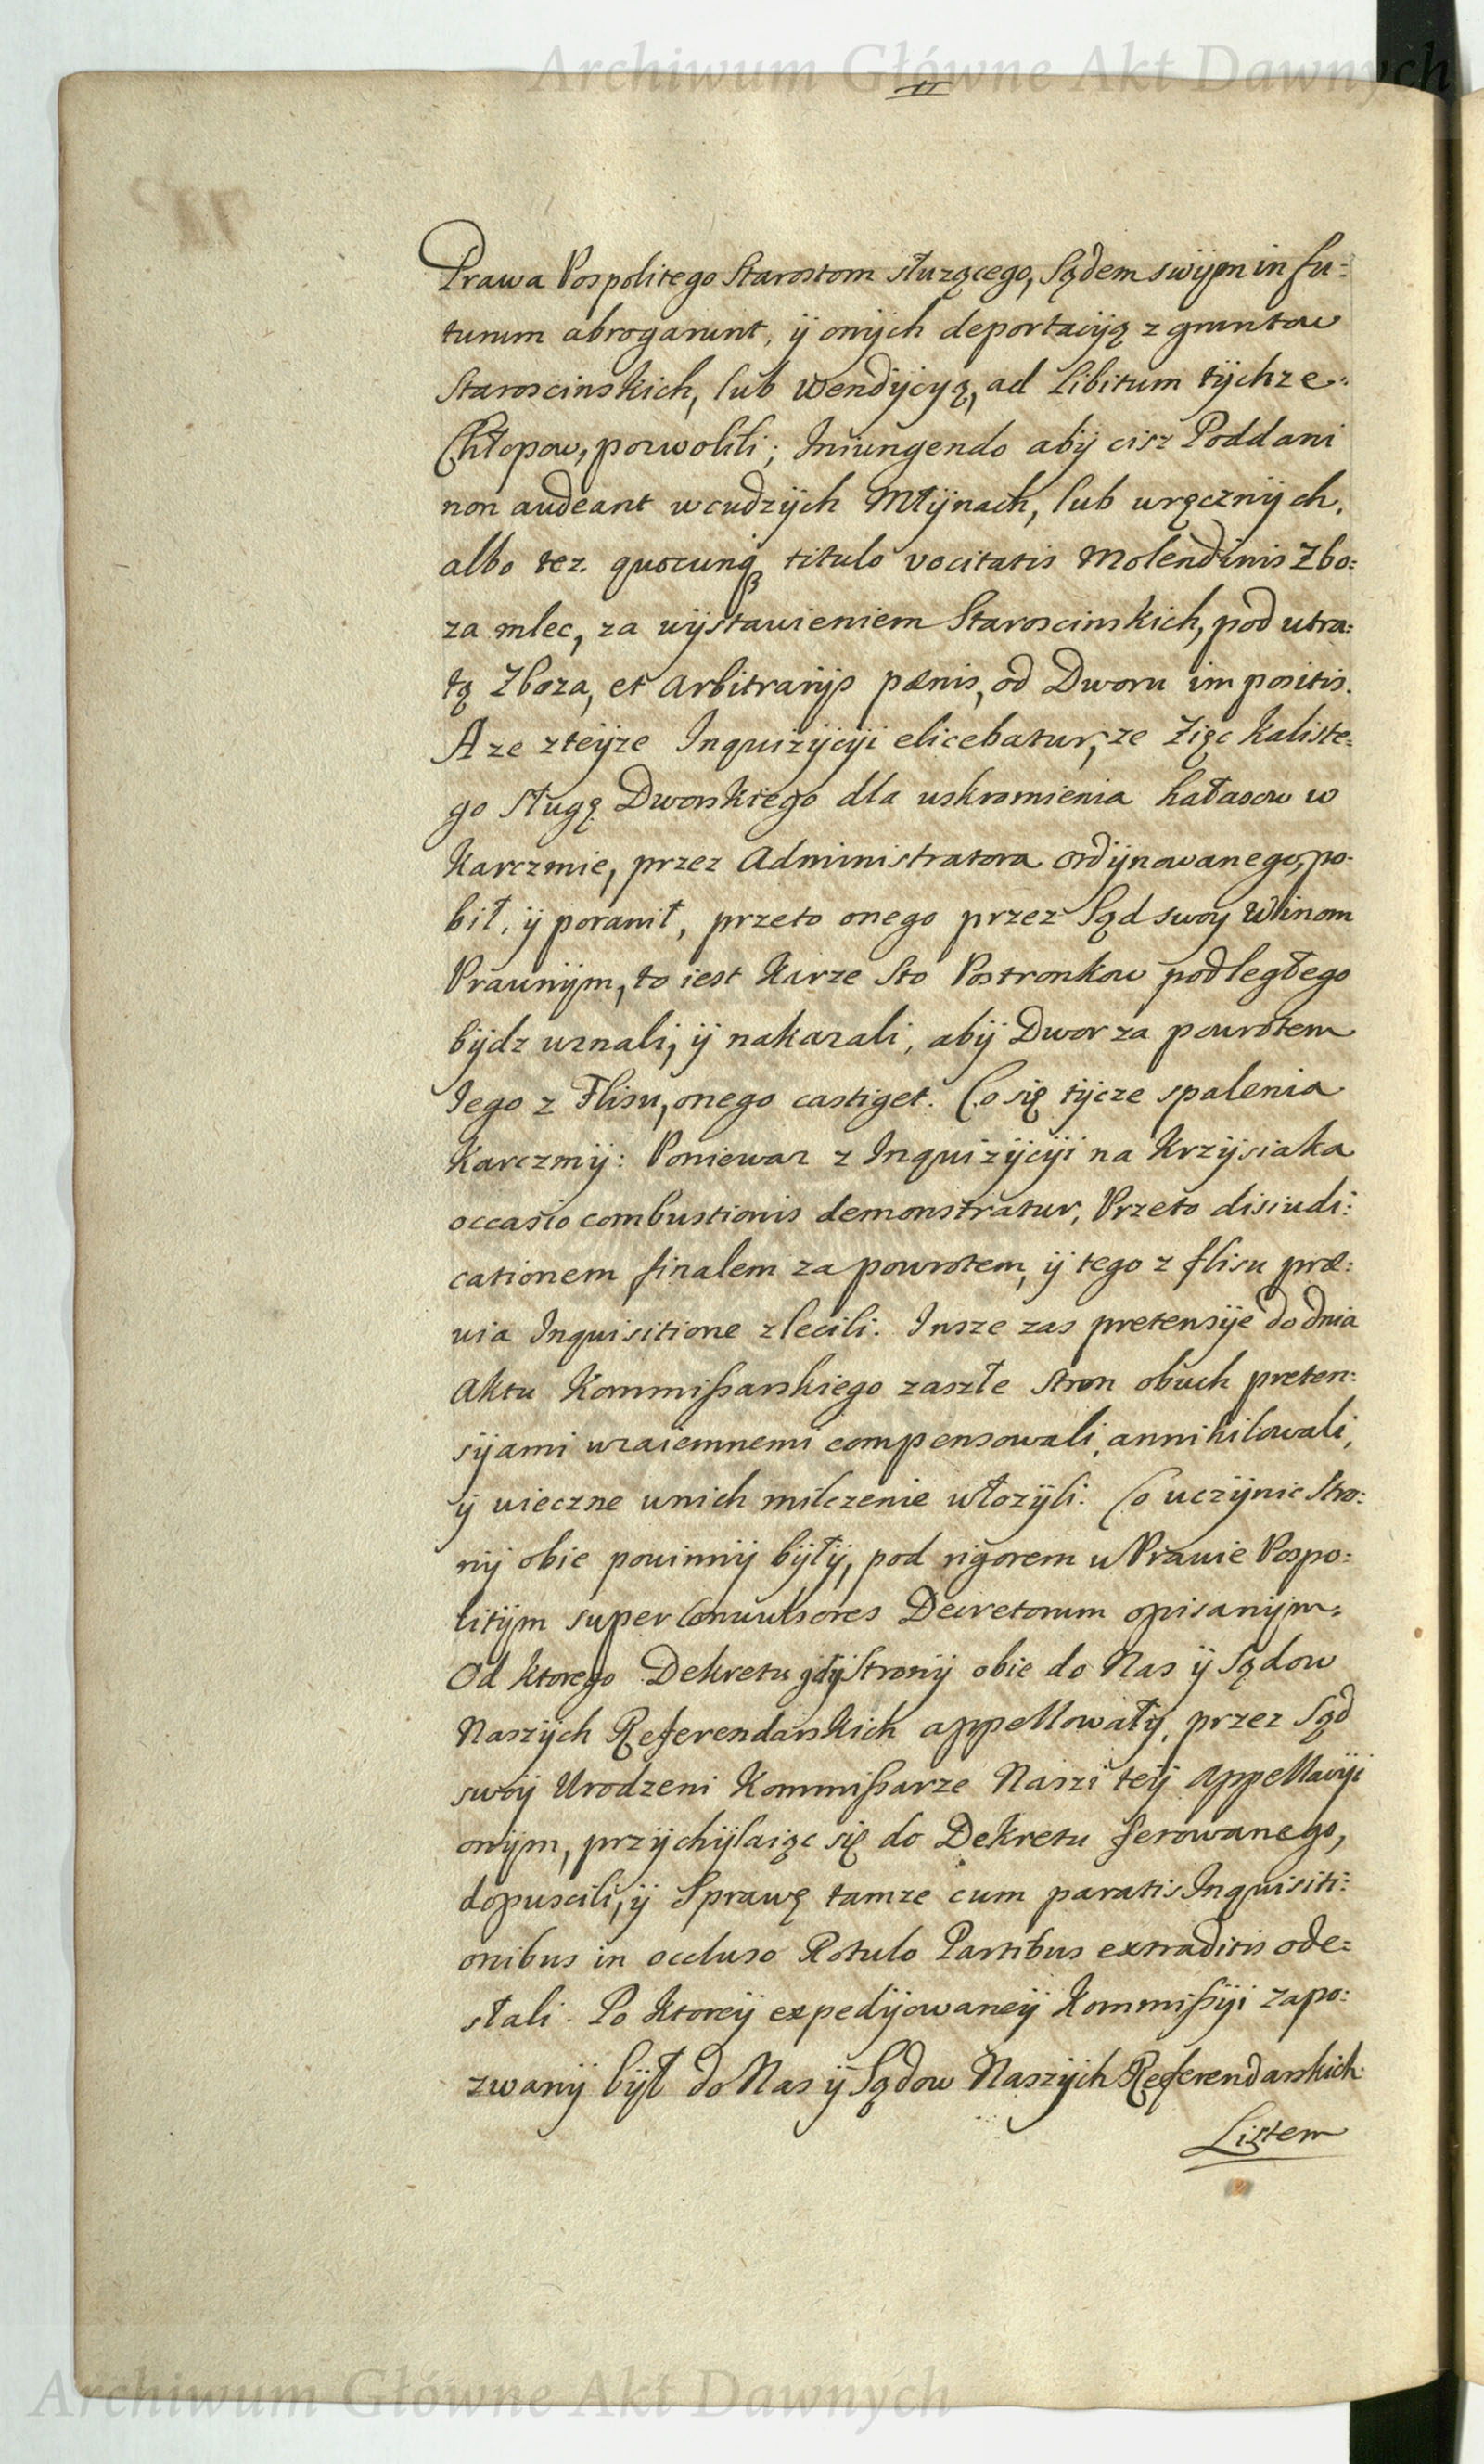 Archiwum Główne Akt Dawnych
Prawa Pospolitego Starostom słuzącego, Sądem swÿm in fu=
turum abrogarunt, ÿ onÿch deportacÿą z gruntow
Staroscinskich, lub Wendÿcyą, ad Libitum tÿchze
Chłopow, pozwolili; Iniungendo abÿ cisz Poddani
non audeant w cudzÿch Młÿnach, lub w ręcznÿch,
albo tez quocunq titulo vocitatis Molendinis Zbo=
za mlec, za wÿstawieniem Staroscinskich, pod utra=
tą Zboza, et Arbitrarÿs pænis, od Dworu impositis.
A ze z teÿze Inquizÿcÿi elicebatur, ze Zięc Kaliste=
go Sługę Dworskiego dla uskromienia hałasow w
Karczmie, przez Administratora ordÿnowanego, po=
bił, ÿ poranił, przeto onego przez Sąd swoy Winom
Prawnÿm, to iest Karze Sto Postronkow podległego
bÿdz uznali, ÿ nakazali, abÿ Dwor za powrotem
Iego z Flisu, onego castiget. Co się tÿcze spalenia
Karczmÿ: Poniewaz z Inquizÿcÿi na Krzÿsiaka
occasio combustionis demonstratur, Przeto disiudi=
cationem finalem za powrotem, ÿ tego z flisu præ=
via Inquisitione zlecili. Insze zas pretensÿe do dnia
Aktu Kommißarskiego zaszłe stron obuch preten=
sÿami wzaiemnemi compensowali, annihilowali,
ÿ wieczne w nich milczenie włozÿli. Co uczÿnic Stro=
nÿ obie powinnÿ bÿłÿ, pod rigorem w Prawie Pospo=
litÿm super Convulsores Decretorum opisanÿm.
Od ktorego Dekretu gdÿ Stronÿ obie do Nas ÿ Sądow
Naszÿch Referendarskich appellowałÿ, przez Sąd
swoÿ Urodzeni Kommißarze Naszi teÿ Appellacÿi
onÿm, przÿchÿlaiąc się do Dekretu ferowanego,
dopuscili, ÿ Sprawę tamze cum paratis Inquisiti=
onibus in occluso Rotulo Partibus extraditis ode=
słali. Po ktoreÿ expedÿowaneÿ Kommißÿi zapo=
zwanÿ bÿł do Nas ÿ Sądow Naszÿch Referendarskich
Listem
Archiwum Główne Akt Dawnych